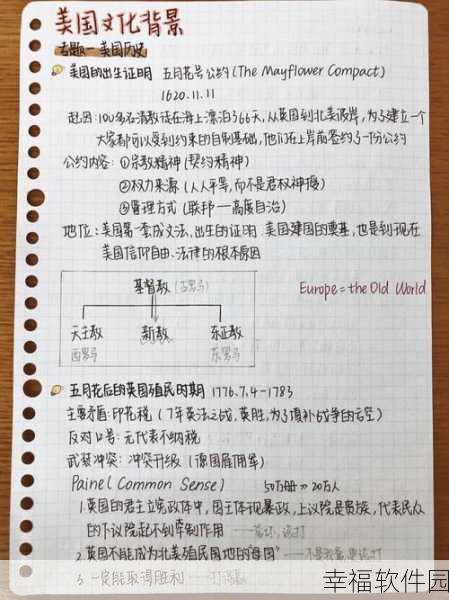 美国文化背景
专题一 美国历史
美国的出生证明 五月花号公约(The Mayflower Compact)
1620.11.11
起因:100多名清教徒在海上漂泊了66天,从英国到北美彼岸,为了建立一个
大家都可以受到约束的自制基础,他们在上岸前签约了一份公约
公约内容:①宗教精神(契约精神)
②权力来源(人人平等,而不是君权神授)
③管理方式(联邦一高度自治)
地位:美国第一套成文法,出生的证明,美国建国的奠基,也是到现在
美国信仰自由、法律的根本原因
基督教(古罗马)
天主教 新教 东正教
西罗马 东罗马
Europe=the Old World
五月花后的英国殖民时期 1776.7.4-1783
主要矛盾:印花税(7年英法之战,英胜,为了填补战争的亏空)
反对口号:无代表不纳税
武装冲突:冲突升级(德国雇佣军)
Paine(Common Sense) 50万册=>20万人
1.英国的君主立宪政体中,国王体现暴政,上议院是贵族,代表民众
的下议院起不到牵制作用
2.英国不能成为北美殖民国地的"母国"
3.一定能取得胜利
幸福软件园